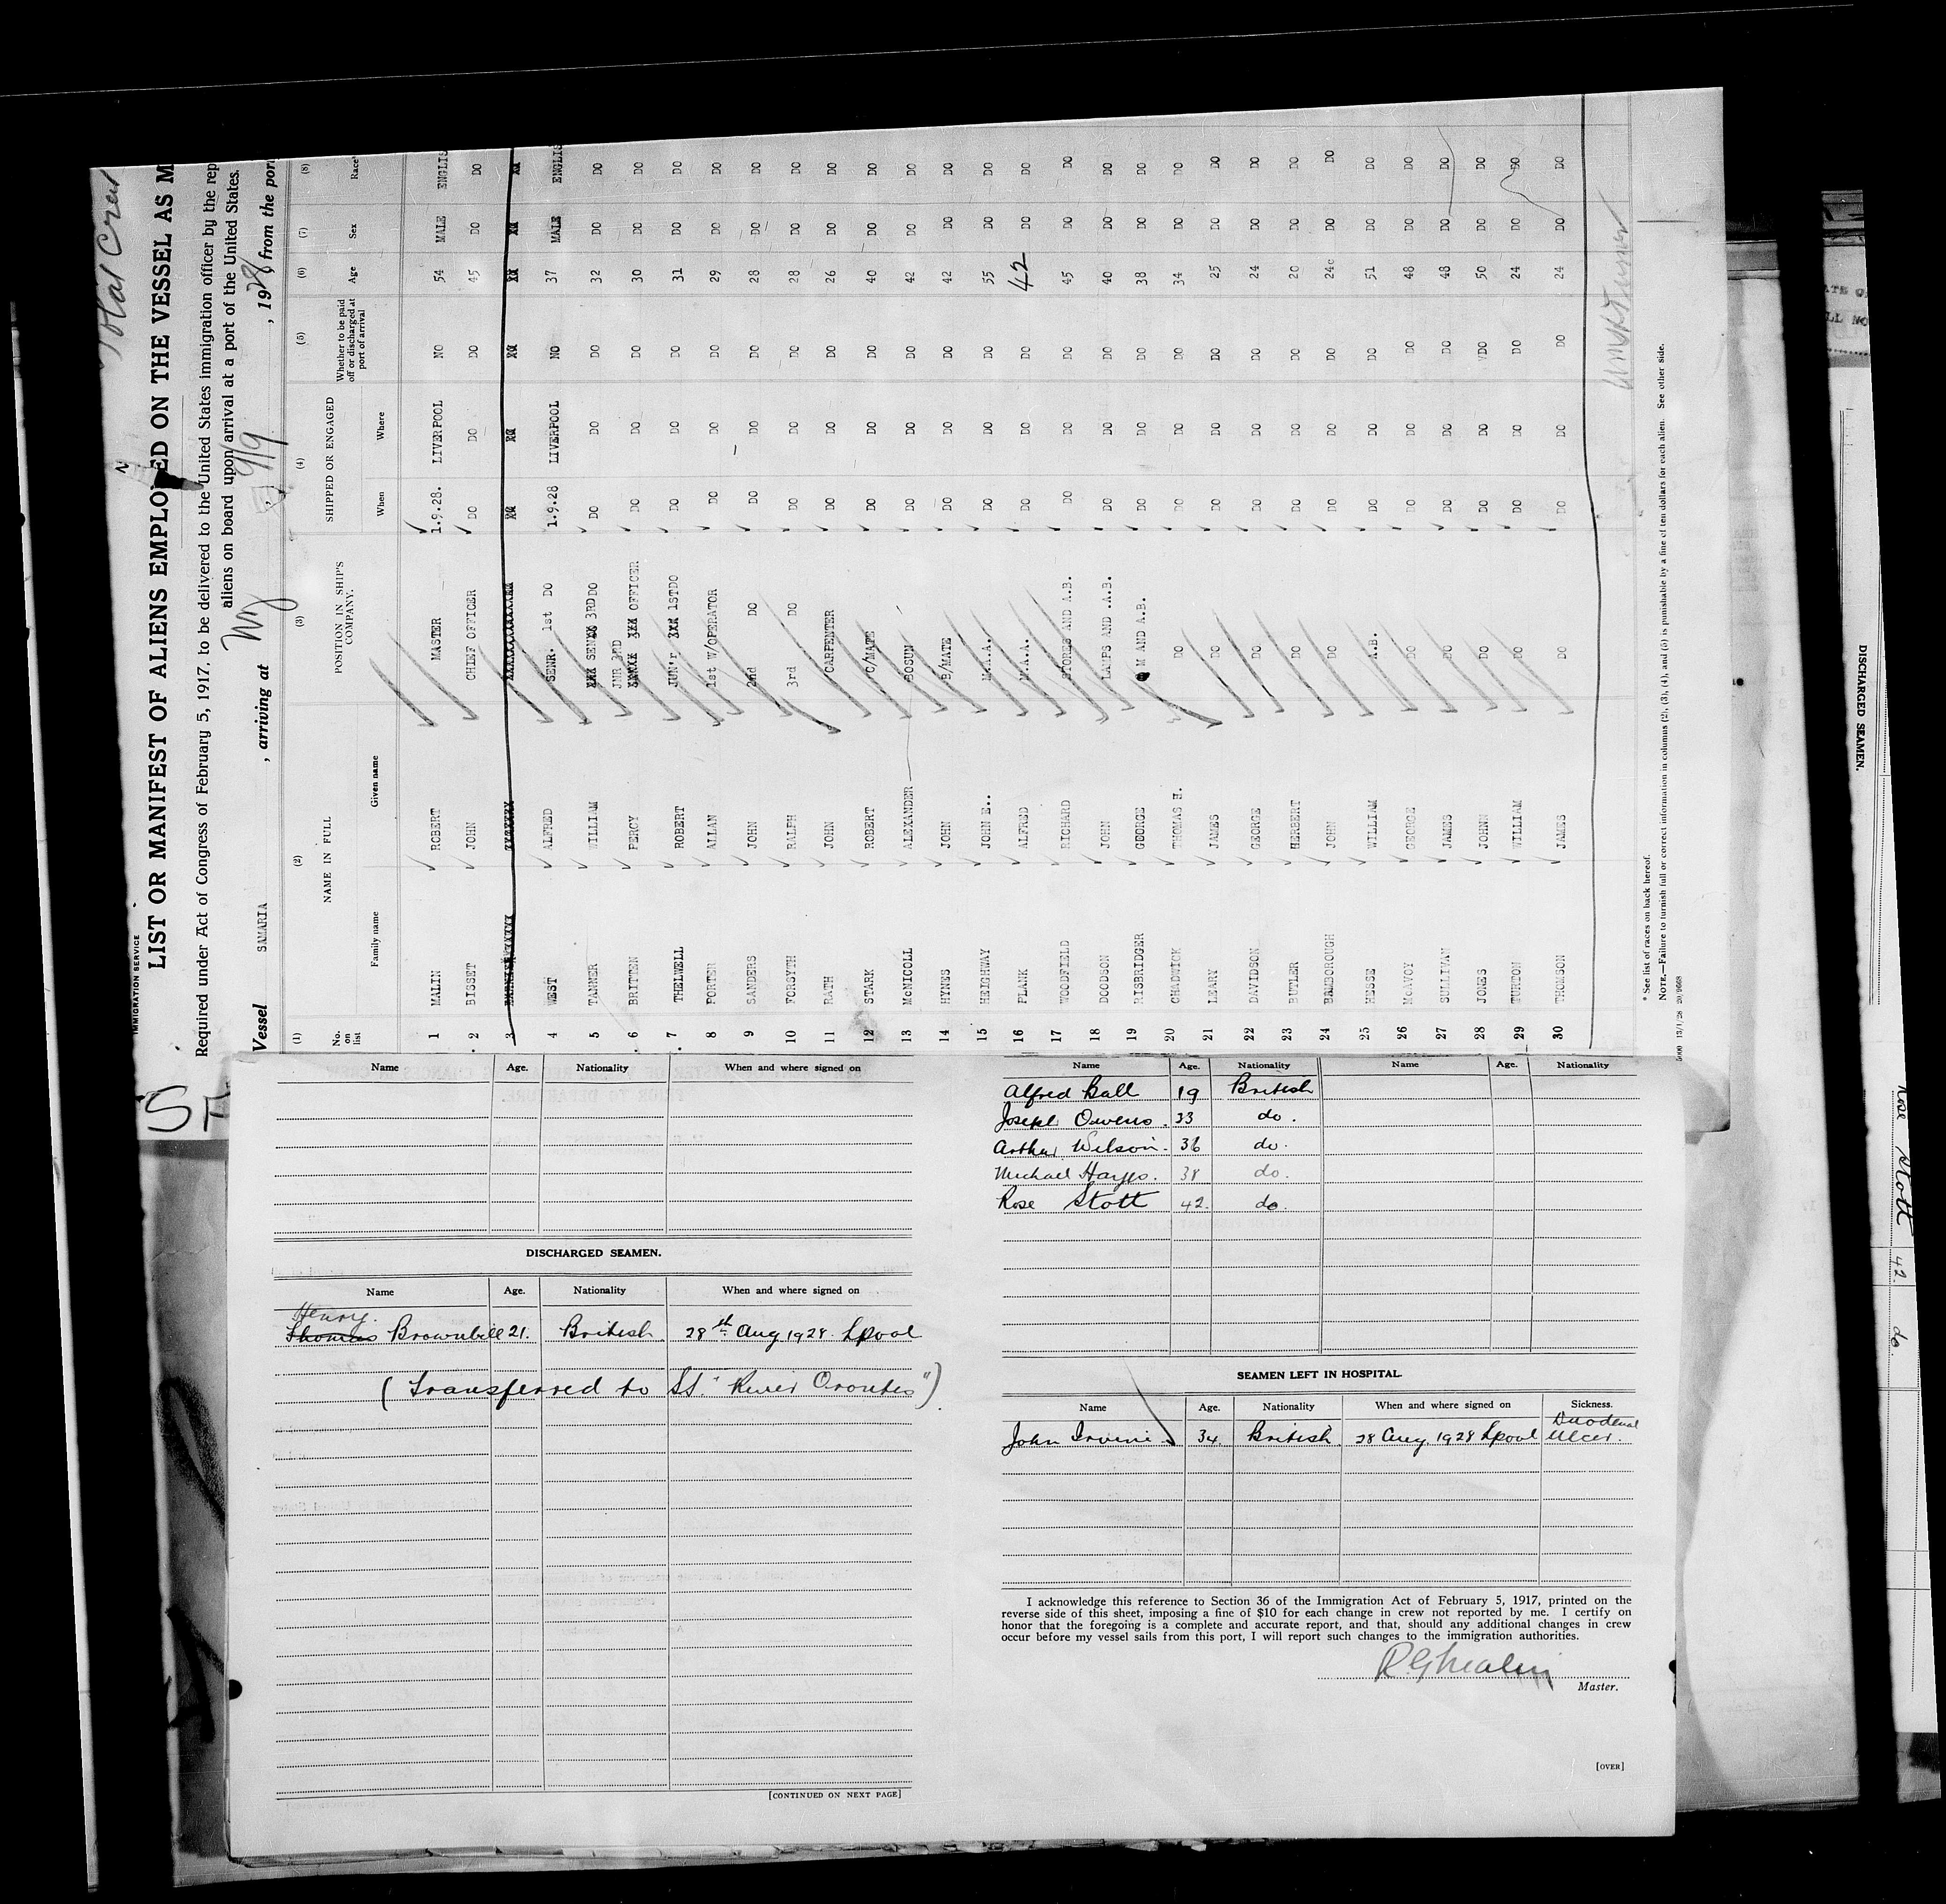 Total Crew
IMMIGRATION SERVICE
LIST OR MANIFEST OF ALIENS EMPLOYED ON THE VESSEL AS M
Required under Act of Congress of February 5, 1917, to be delivered to the United States immigration officer by the rep
aliens on board upon arrival at a port of the United States.
Vessel SAMARIA , arriving at NY , 9/9 , 1928, from the port
(1) (2) (3) (4) (5) (6) (7) (8)
No. on list NAME IN FULL POSITION IN SHIP'S COMPANY. SHIPPED OR ENGAGED Whether to be paid off or discharged at port of arrival Age Sex Race*
Family name Given name When Where
1 MALIN ROBERT MASTER 1.9.28. LIVERPOOL NO 54 MALE ENGLIS
2 BISSET JOHN CHIEF OFFICER DO DO DO 45 DO DO
3
4 WEST ALFRED SENR. 1st DO 1.9.28 LIVERPOOL NO 37 MALE ENGLIS
5 TANNER WILLIAM XXX SENXX 3RD DO DO DO DO 32 DO DO
6 BRITTEN PERCY JNR 3RD XXXXX XXX OFFICER DO DO DO 30 DO DO
7. THELWELL ROBERT JUN'r XXX 1STDO DO DO DO 31 DO DO
8 PORTER ALLAN 1st W/OPERATOR DO DO DO 29 DO DO
9 SANDERS JOHN 2nd DO DO DO 28 DO DO
10 FORSYTH RALPH 3rd DO DO DO DO 28 DO DO
11 RATH JOHN CARPENTER DO DO DO 26 DO DO
12 STARK ROBERT C/MATE DO DO DO 40 DO DO
13 McNICOLL ALEXANDER BOSUN DO DO DO 42 DO DO
14 HYNES JOHN B/MATE DO DO DO 42 DO DO
15 HEIGHWAY JOHN E.. M.A.A. DO DO DO 55 DO DO
16 PLANK ALFRED M.A.A. DO DO DO 42 DO DO
17 WOODFIELD RICHARD STORES AND A.B. DO DO DO 45 DO DO
18 DOODSON JOHN LAMPS AND .A.B. DO DO DO 40 DO DO
19 RISBRIDGER GEORGE Q M AND A.B. DO DO DO 38 DO DO
20 CHADWICK THOMAS H. DO DO DO DO 34 DO DO
21 LEARY JAMES DO DO DO DO 25 DO DO
22 DAVIDSON GEORGE DO DO DO DO 24 DO DO
23 BUTLER HERBERT DO DO DO DO 20 DO DO
24 BAMBOROUGH JOHN DO DO DO DO 24 DO DO
25 HESSE WILLIAM A.B. DO DO DO 51 DO DO
26 McAVOY GEORGE DO DO DO DO 48 DO DO
27 SULLIVAN JAMES DO DO DO DO 48 DO DO
28 JONES JOHN DO DO DO DO 50 DO DO
29 TURTON WILLIAM DO DO DO DO 24 DO DO
30 THOMSON JAMES DO DO DO DO 24 DO DO
* See list of races on back hereof.
NOTE.—Failure to furnish full or correct information in columns (2), (3), (4), and (5) is punishable by a fine of ten dollars for each alien. See other side.
5000 13/1/28 20/9668
Name Age. Nationality When and where signed on
DISCHARGED SEAMEN.
Name Age. Nationality When and where signed on
Henry.
Thomas Brownbill 21. British 28th Aug 1928 Lpool
(Transferred to St. "River Orontes")
[CONTINUED ON NEXT PAGE]
Name Age. Nationality Name Age. Nationality
Alfred Ball 19 British
Joseph Owens. 33 do.
Arthur Wilson. 36 do.
Michael Hayes. 38 do.
Rose Stott 42. do.
SEAMEN LEFT IN HOSPITAL.
Name Age. Nationality When and where signed on Sickness.
John Irvine 34. British. 28 Aug. 1928 Lpool Duodenal Ulcer.
I acknowledge this reference to Section 36 of the Immigration Act of February 5, 1917, printed on the
reverse side of this sheet, imposing a fine of $10 for each change in crew not reported by me. I certify on
honor that the foregoing is a complete and accurate report, and that, should any additional changes in crew
occur before my vessel sails from this port, I will report such changes to the immigration authorities.
R G Malin
Master.
[OVER]
DISCHARGED SEAMEN.
Rose Stott 42. do.